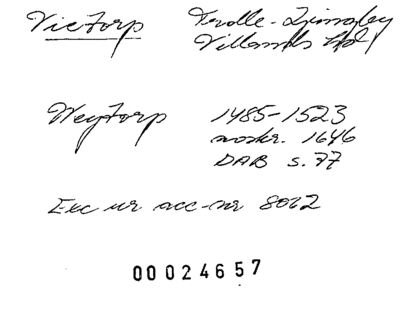 Victorp Trolle-Ljungby
Villands hd
Weytorp 1485-1523
avskr. 1646
DAB s. 77
Exc ur acc-nr 8062
00024657